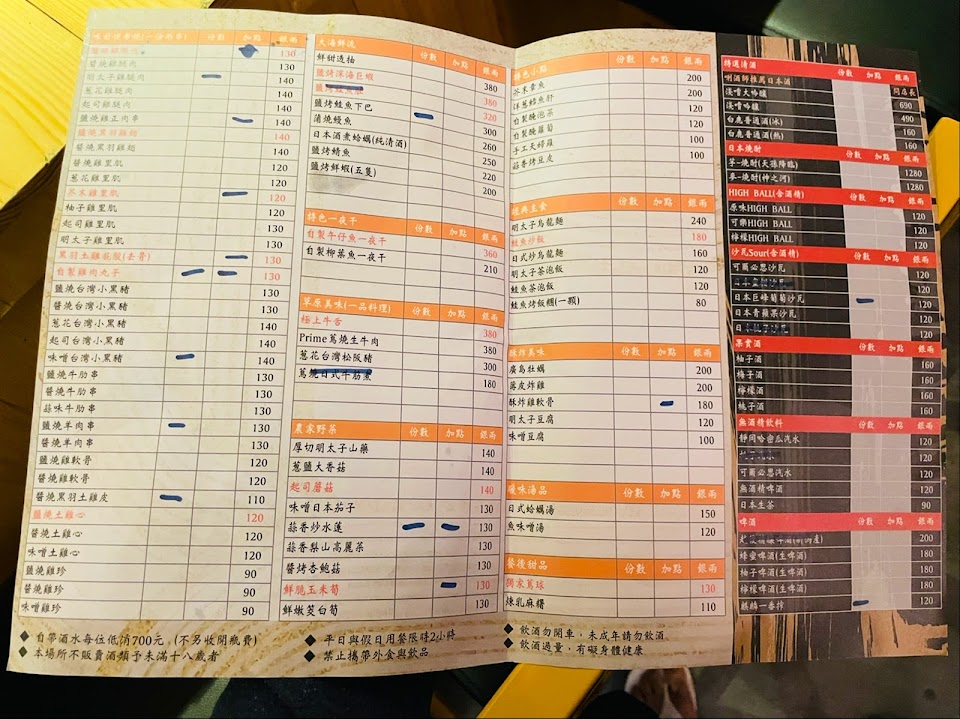 份數 加點 銀兩
鹽燒雞腿肉 130
醬燒雞腿肉 140
明太子雞腿肉 140
蔥花雞腿肉 140
起司雞腿肉 140
鹽燒雞正肉串 140
鹽燒黑羽雞翅 140
醬燒黑羽雞翅 140
醬燒雞里肌 120
蔥花雞里肌 120
芥末雞里肌 120
柚子雞里肌 120
起司雞里肌 130
明太子雞里肌 130
黑羽土雞屁股(去骨) 130
自製雞肉丸子 130
鹽燒台灣小黑豬 130
醬燒台灣小黑豬 130
蔥花台灣小黑豬 140
起司台灣小黑豬 140
味噌台灣小黑豬 140
鹽燒牛肋串 130
醬燒牛肋串 130
蒜味牛肋串 130
鹽燒羊肉串 130
醬燒羊肉串 130
鹽燒雞軟骨 120
醬燒雞軟骨 120
醬燒黑羽土雞皮 110
鹽燒土雞心 120
醬燒土雞心 120
味噌土雞心 120
鹽燒雞珍 90
醬燒雞珍 90
味噌雞珍 90
大海鮮流 份數 加點 銀兩
鮮甜透抽 380
鹽烤深海巨蝦 380
鹽烤鮭魚下巴 300
蒲燒鰻魚 260
日本酒煮蛤蠣(純清酒) 250
鹽烤鯖魚 220
鹽烤鮮蝦(五隻) 200
特色一夜干 份數 加點 銀兩
自製午仔魚一夜干 360
自製柳葉魚一夜干 210
草原美味(一品料理) 份數 加點 銀兩
極上牛舌 380
Prime蔥燒生牛肉 380
蔥花台灣松阪豬 300
蔥燒日式牛筋煮 180
農家野菜 份數 加點 銀兩
厚切明太子山藥 140
蔥鹽大香菇 140
起司蘑菇 140
味噌日本茄子 130
蒜香炒水蓮 130
蒜香梨山高麗菜 130
醬烤杏鮑菇 130
鮮脆玉米筍 130
鮮嫩茭白筍 130
特色小點 份數 加點 銀兩
芥末章魚 200
洋蔥鱈魚肝 200
自製醃泡菜 120
自製醃蘿蔔 100
手工天婦羅 100
蒜香烤豆皮
經典主食 份數 加點 銀兩
明太子烏龍麵 240
鮭魚炒飯 180
日式炒烏龍麵 160
明太子茶泡飯 120
鮭魚茶泡飯 120
鮭魚烤飯糰(一顆) 80
酥炸美味 份數 加點 銀兩
廣島牡蠣 200
薄皮炸雞 200
酥炸雞軟骨 180
明太子豆腐 120
味噌豆腐 100
暖味湯品 份數 加點 銀兩
日式蛤蠣湯 150
魚味噌湯 120
餐後甜品 份數 加點 銀兩
獨家蔦球 130
煉乳麻糬 110
特選清酒 份數 加點 銀兩
唎酒師推薦日本酒 問店長
淺嚐大吟釀 690
淺嚐吟釀 490
白鹿普通酒(冰) 160
白鹿普通酒(熱) 160
日本燒酎 份數 加點 銀兩
芋-燒酎(天孫降臨) 1280
麥-燒酎(神之河) 1280
HIGH BALL(含酒精) 份數 加點 銀兩
原味HIGH BALL 120
可樂HIGH BALL 120
檸檬HIGH BALL 120
沙瓦Sour(含酒精) 份數 加點 銀兩
可爾必思沙瓦 120
日本巨峰葡萄沙瓦 120
日本青蘋果沙瓦 120
果實酒 份數 加點 銀兩
柚子酒 160
梅子酒 160
檸檬酒 160
桃子酒 160
無酒精飲料 份數 加點 銀兩
靜岡哈密瓜汽水 120
可爾必思汽水 120
無酒精啤酒 120
日本生茶 90
啤酒 份數 加點 銀兩
蜂蜜啤酒(生啤酒) 180
柚子啤酒(生啤酒) 180
檸檬啤酒(生啤酒) 180
麒麟一番搾 120
◆ 自帶酒水每位低消700元 (不另收開瓶費)
◆ 本場所不販賣酒類予未滿十八歲者
◆ 平日與假日用餐限時2小時
◆ 禁止攜帶外食與飲品
◆ 飲酒勿開車，未成年請勿飲酒
◆ 飲酒過量，有礙身體健康